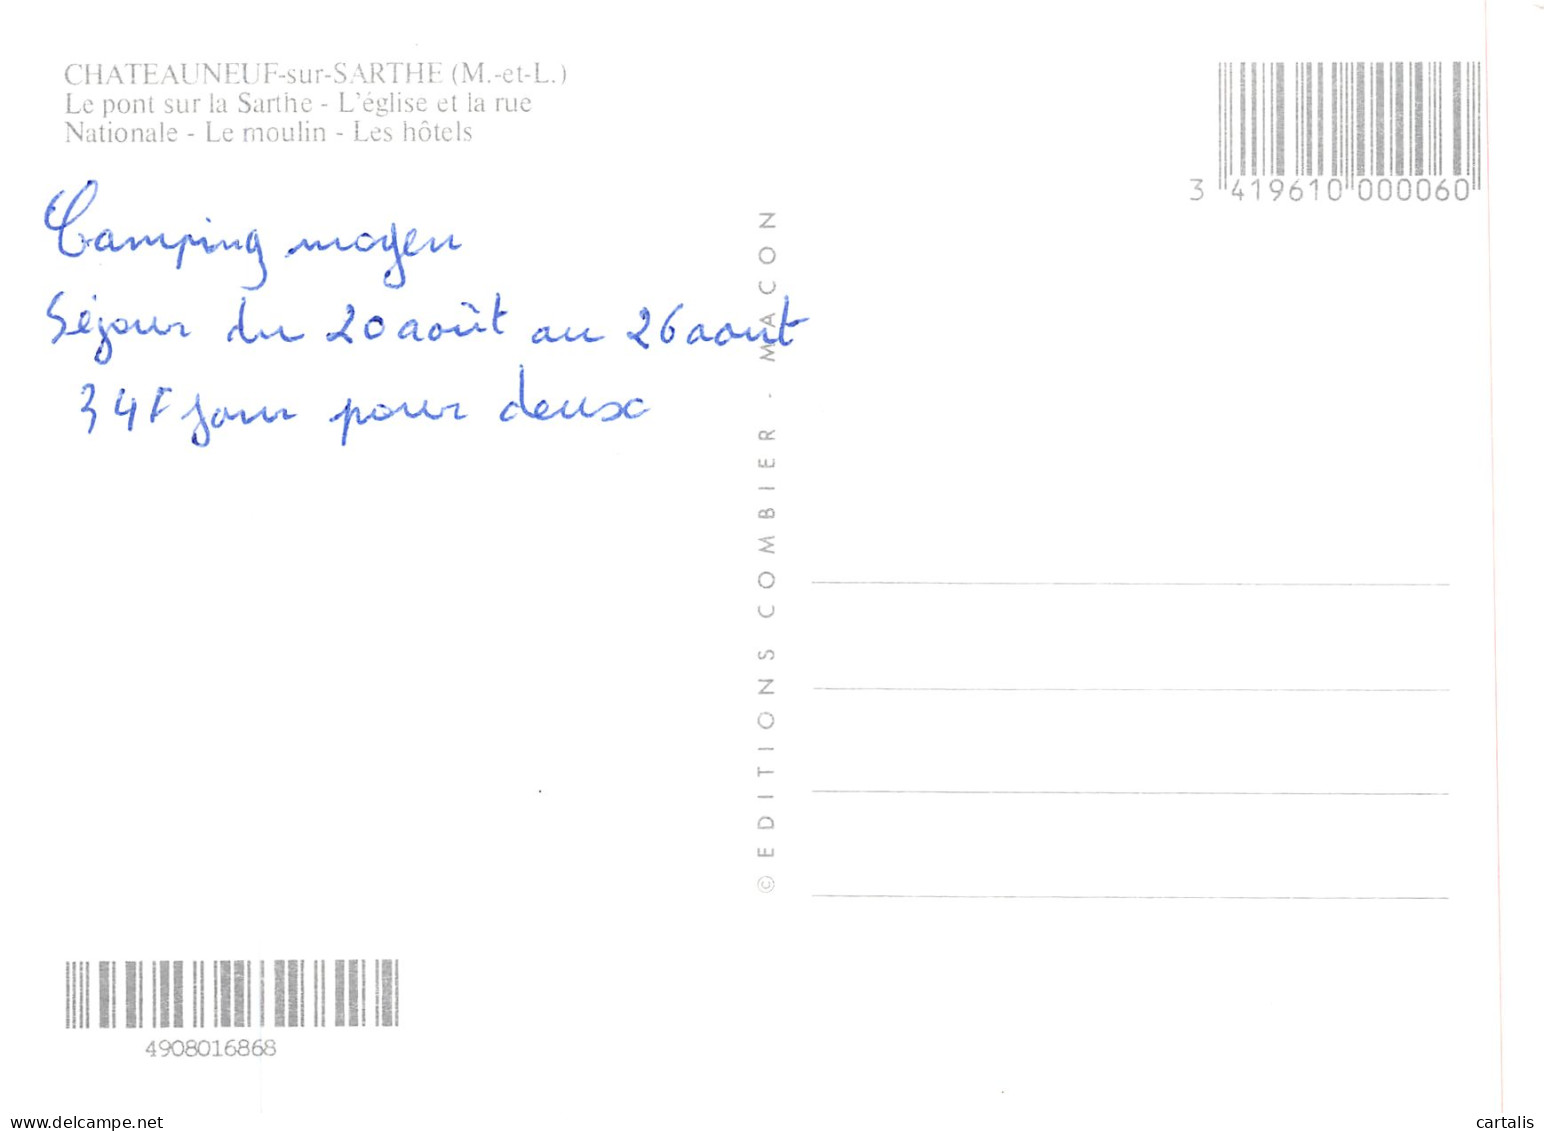 CHATEAUNEUF-sur-SARTHE (M.-et-L.)
Le pont sur la Sarthe - L'église et la rue
Nationale - Le moulin - Les hôtels
3 419610 000060
Camping moyen
Séjour du 20 août au 26 aout
34F jour pour deux
© EDITIONS COMBIER - MACON
4908016868
cartalis